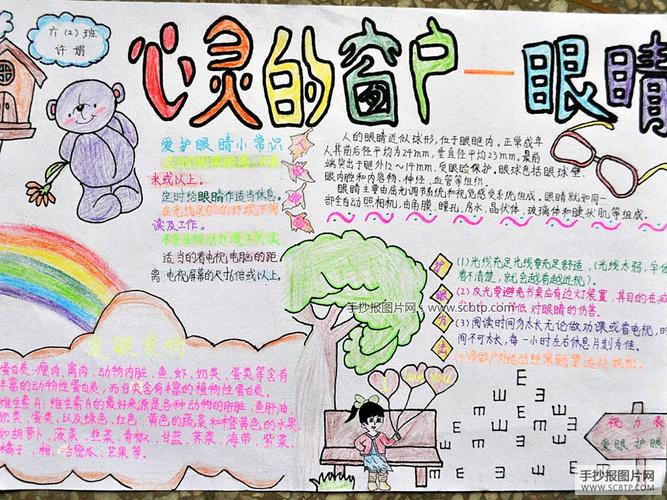 六(2)班
许娟
心灵的窗户一眼睛
爱护眼睛小常识
米或以上。
定时给眼睛作适当休息。
读及工作。
适当的看电视,电脑的距
离:电视屏幕的尺寸6倍或以上。
人的眼睛近似球形,位于眼眶内。正常成年
人其前后径平均为24mm,垂直径平均23mm。最前
端突出于眶外12~14mm,受眼睑保护。眼球包括眼球壁、
眼内腔和内容物、神经、血管等组织。
眼睛主要由感光调节系统和视觉感受系统组成。眼睛就如同一
部全自动照相机,由角膜、瞳孔、房水、晶状体、玻璃体和睫状肌等组成。
护眼方法
(1)光线充足光线要充足舒适,(光线太弱,字体
看不清楚,就会越看越近视)。
(2)反光要避免书桌应有边灯装置,其目的在减
低对眼睛的伤害。
(3)阅读时间勿太长无论做功课或看电视,时
间不可太长,每一小时左右休息片刻为佳。
手抄报图片网
www.scbtp.com
爱眼食物
蛋白质:瘦肉、禽肉、动物内脏、鱼、虾、奶类、蛋类等含有
丰富的动物性蛋白质,而豆类含有丰富的植物性蛋白质。
维生素A:维生素A的最好来源是各种动物的肝脏、鱼肝油、
奶类、蛋类,以及绿色、红色、黄色的蔬菜和橙黄色的水果,
如胡萝卜、菠菜、韭菜、青椒、甘蓝、荠菜、海带、紫菜、
橘子、柑、芒果等。
I Love you
E E E E E
视力表
爱眼护眼
手抄报图片网
WWW.SCBTP.COM